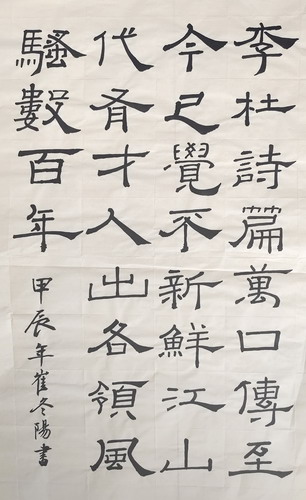 李杜詩篇萬口傳至
今已覺不新鮮江山
代有才人出各領風
騷數百年
甲辰年崔冬陽書